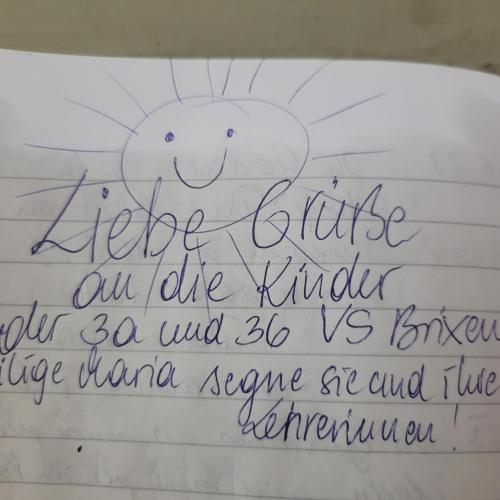 Liebe Grüße
an die Kinder
der 3a und 3b VS Brixen
ilige Maria segne sie und ihre
Lehrerinnen!